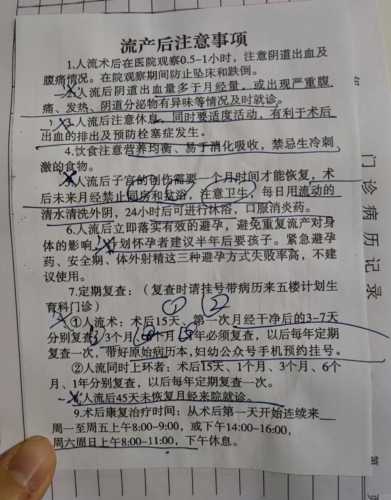 流产后注意事项
1.人流术后在医院观察0.5-1小时，注意阴道出血及
腹痛情况。在院观察期间防止坠床和跌倒。
2.人流后阴道出血量多于月经量，或出现严重腹
痛、发热、阴道分泌物有异味等情况及时就诊。
3.人流后注意休息，同时要适度活动，有利于术后
出血的排出及预防栓塞症发生。
4.饮食注意营养均衡、易于消化吸收，禁忌生冷刺
激的食物。
5.人流后子宫的创伤需要一个月时间才能恢复，术
后未来月经禁止同房和盆浴，注意卫生，每日用流动的
清水清洗外阴，24小时后可进行沐浴，口服消炎药。
6.人流后应立即落实有效的避孕，避免重复流产对身
体的影响，计划怀孕者建议半年后要孩子。紧急避孕
药、安全期、体外射精这三种避孕方式失败率高，不建
议使用。
7.定期复查：（复查时请挂号带病历来五楼计划生
育科门诊）
① ②
①人流术：术后15天、第一次月经干净后的3-7天
分别复查，3个月、6个月、1年必须复查，以后每年定期
复查一次，带好原始病历本，妇幼公众号手机预约挂号。
②人流同时上环者：术后15天、1个月、3个月、6个
月、1年分别复查，以后每年定期复查一次。
8.人流后45天未恢复月经来院就诊。
9.术后康复治疗时间：从术后第一天开始连续来
周一至周五上午8:00-9:00，或下午14:00-16:00，
周六周日上午8:00-11:00，下午休息。
门诊病历记录